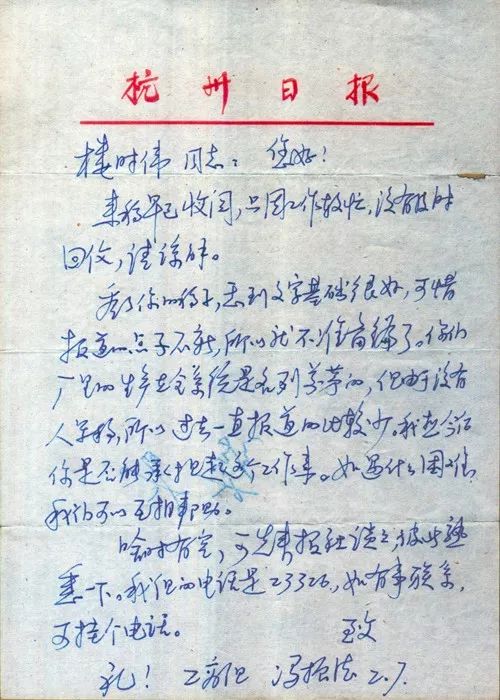 杭州日报
楼时伟同志：您好！
来稿早已收阅，只因工作较忙，没有及时
回信，请谅解。
看了你的稿子，感到文字基础很好，可惜
报道的点子不新，所以就不准备编了。你们
厂里的生产在全系统是名列前茅的，但由于没有
人写稿，所以过去一直报道的比较少。我想今后
你是否能承担起这个工作来。如遇什么困难，
我们可以互相帮助。
啥时有空，可先来报社谈谈，彼此熟
悉一下。我们的电话是23326，如有事联系，
可挂个电话。
致
礼！ 工商组 冯 2.7.